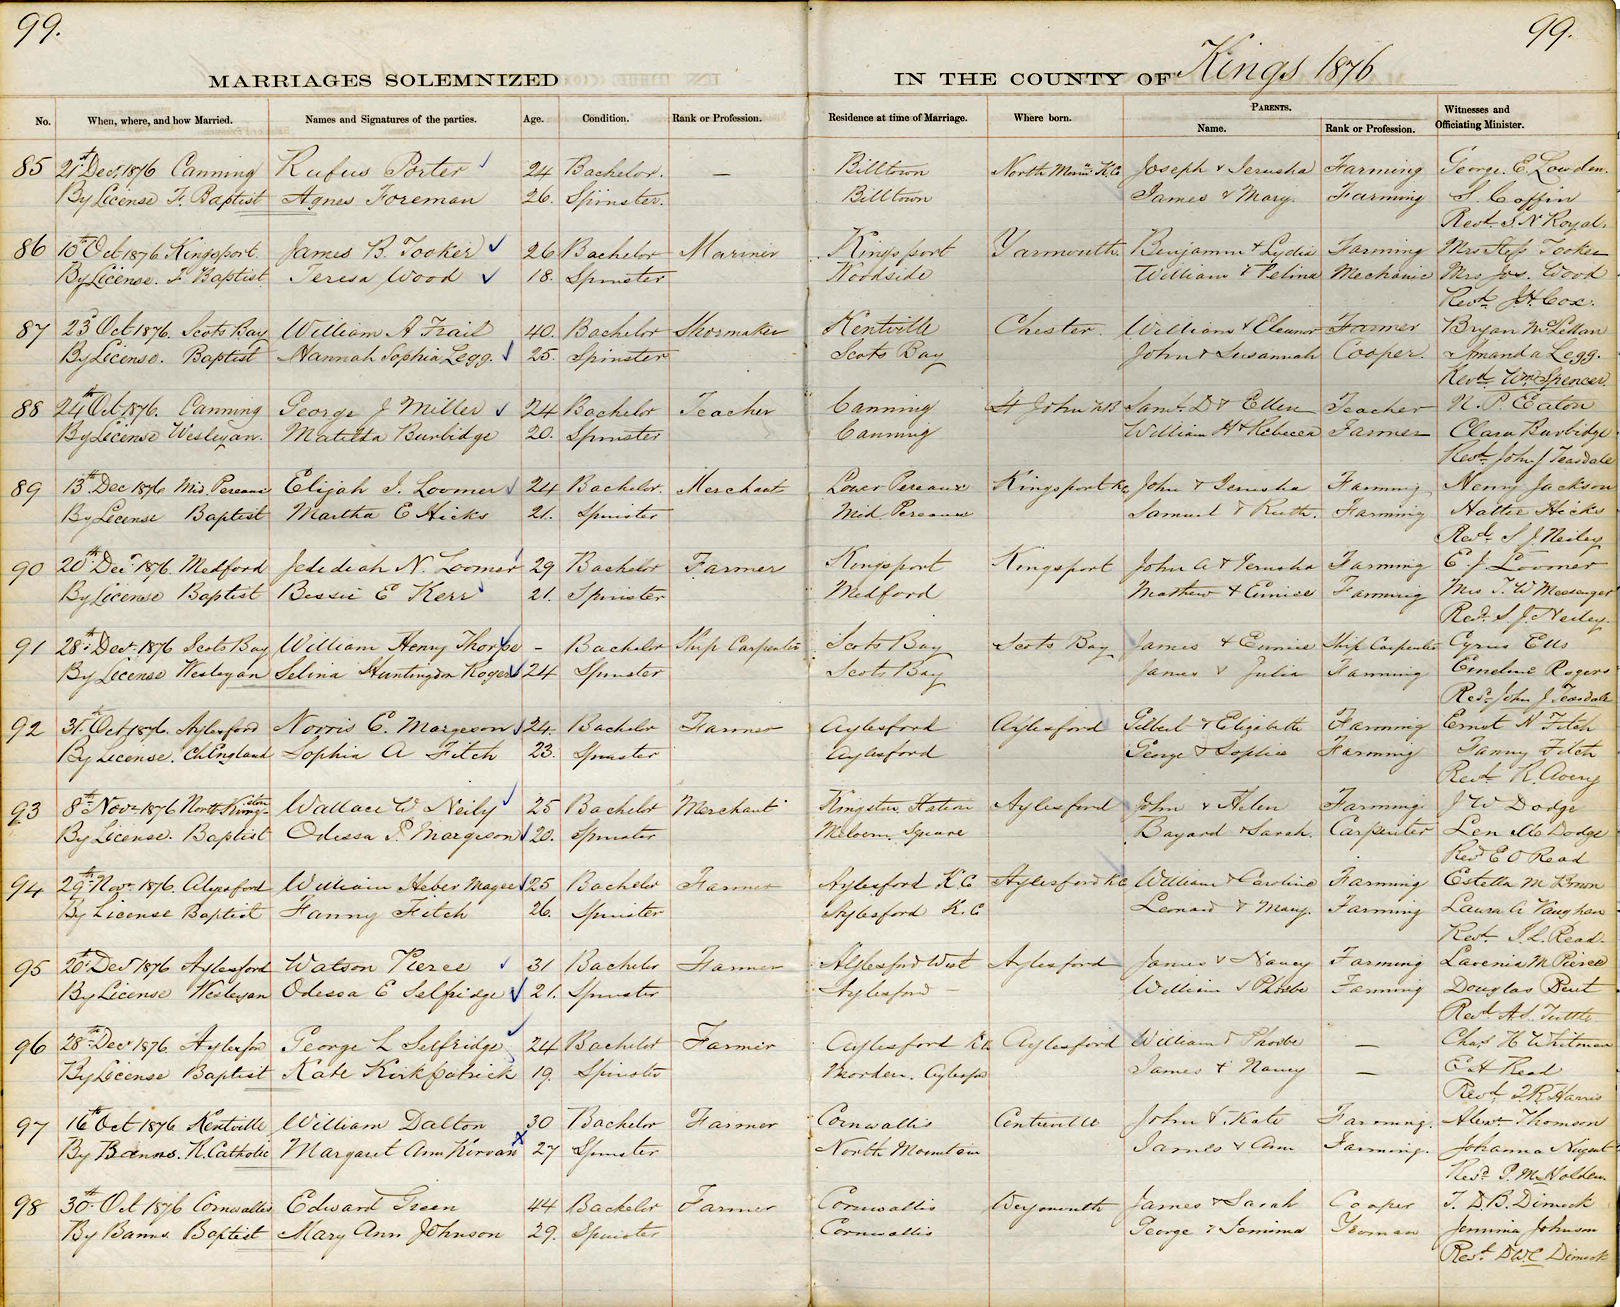 99.
99.
MARRIAGES SOLEMNIZED IN THE COUNTY OF Kings 1876
No. When, where, and how Married. Names and Signatures of the parties. Age. Condition. Rank or Profession. Residence at time of Marriage. Where born. PARENTS. Name. Rank or Profession. Witnesses and Officiating Minister.
85 21st Decr 1876 Canning Rufus Porter 24 Bachelor. — Billtown North Mount. K.C. Joseph & Jerusha Farming George. E. Lowden.
By License F. Baptist Agnes Foreman 26. Spinster. Billtown James & Mary. Farming S. Coffin
Revd. S. N. Royal.
86 10th Oct 1876 Kingsport. James B. Tooker 26 Bachelor Mariner Kingsport Yarmouth. Benjamin & Lydia Farming Mrs Tooker
By License. F. Baptist Teresa Wood 18. Spinster Woodside William & Mechanic Mrs Jos. Wood
Revd. J. H. Cox.
87 23d Oct 1876. Scots Bay William A Frail 40. Bachelor Shoemaker Kentville Chester. William & Eleanor Farmer Bryan McLellan
By License. Baptist Hannah Sophia Legg. 25. Spinster Scots Bay John & Susannah Cooper. Amanda Legg.
Revd. Wm. Spencer.
88 24th Oct 1876. Canning George J Miller 24 Bachelor Teacher Canning St John N.B. Saml. D & Ellen Teacher N. P. Eaton
By License Wesleyan. Matilda Burbidge 20. Spinster Canning William H & Rebecca Farmer Clara Burbidge
Revd. John J Teasdale
89 13th Dec 1876 Mid. Pereaux Elijah J. Loomer 24 Bachelor. Merchant Lower Pereaux Kingsport K.C. John & Jerusha Farming Henry Jackson
By License Baptist Martha E Hicks 21. Spinster Mid Pereaux Samuel & Ruth. Farming Hattie Hicks
Revd. S J Neiley
90 20th Decr 1876. Medford Jedidiah N. Loomer 29 Bachelor Farmer Kingsport Kingsport John A & Jerusha Farming E. J. Loomer
By License Baptist Bessie E Kerr 21. Spinster Medford Mathew & Eunice Farming Mrs T. W Messenger
Revd. S. J. Neiley.
91 28th Decr. 1876 Scots Bay William Henry Thorpe - Bachelor Ship Carpenter Scots Bay Scots Bay James & Eunice Ship Carpenter Cyrus Ells
By License Wesleyan Selina Huntingdon Rogers 24 Spinster Scots Bay James & Julia Farming Emeline Rogers
Revd. John J. Teasdale
92 31st Oct 1876. Aylesford Norris E. Margeson 24. Bachelor Farmer Aylesford Aylesford Gilbert & Elizabeth Farming Ernst N Fitch
By License. Ch England Sophia A Fitch 23. Spinster Aylesford George & Sophia Farming Fanny Fitch
Revd. R. Avery
93 8th Novr 1876 North Kingston Wallace W Neily 25 Bachelor Merchant Kingston Station Aylesford John & Helen Farming J W Dodge
By License. Baptist Odessa P. Margeson 20. Spinster Melvern Square Bayard & Sarah. Carpenter Len Dodge
Revd E O Read
94 29th Novr 1876. Aylesford William Heber Magee 25 Bachelor Farmer Aylesford K.C Aylesford K.C William & Caroline Farming Estella M Brown
By License Baptist Fanny Fitch 26. Spinster Aylesford K.C Leonard & Mary. Farming Laura A Vaughan
Revd. J. L. Read.
95 20th Decr 1876 Aylesford Watson Pierce 31 Bachelor Farmer Aylesford West Aylesford James & Nancy Farming Lavenia M Pierce
By License Wesleyan Odessa E Selfridge 21. Spinster Aylesford - William & Phoebe Farming Douglas Bent
Revd A. S. Tuttle
96 28th Decr 1876 Aylesford George L Selfridge 24 Bachelor Farmer Aylesford K.C. Aylesford William & Phoebe — Chas H Whitman
By License Baptist Kate Kirkpatrick 19. Spinster Morden. Aylesford James & Nancy — E H Read
Revd. T. R. Harris
97 16th Oct 1876 Kentville William Dalton 30 Bachelor Farmer Cornwallis Centreville John & Kate Farming. Alexr. Thomson
By Banns. R. Catholic Margaret Ann Kirvan 27 Spinster North Mountain James & Ann Farming. Johanna Nugent
Revd. P. M. Holden.
98 30th Oct 1876 Cornwallis Edward Green 44 Bachelor Farmer Cornwallis Weymouth James & Sarah Cooper T. D. B. Dimock
By Banns. Baptist Mary Ann Johnson 29. Spinster Cornwallis George & Jemima Yeoman Jemima Johnson
Revd. D. W. C Dimock